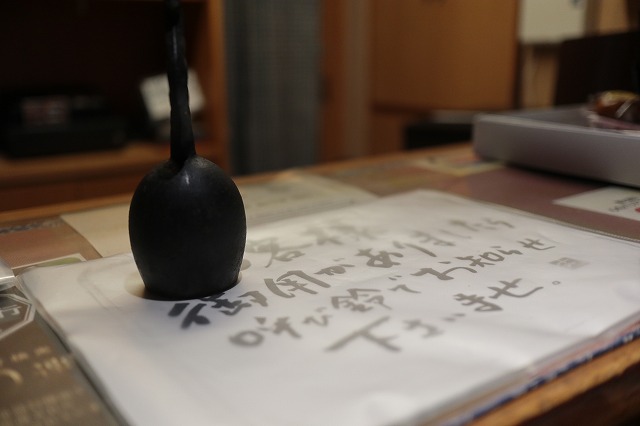 客様
御用がありましたら
呼び鈴でお知らせ
下さいませ。